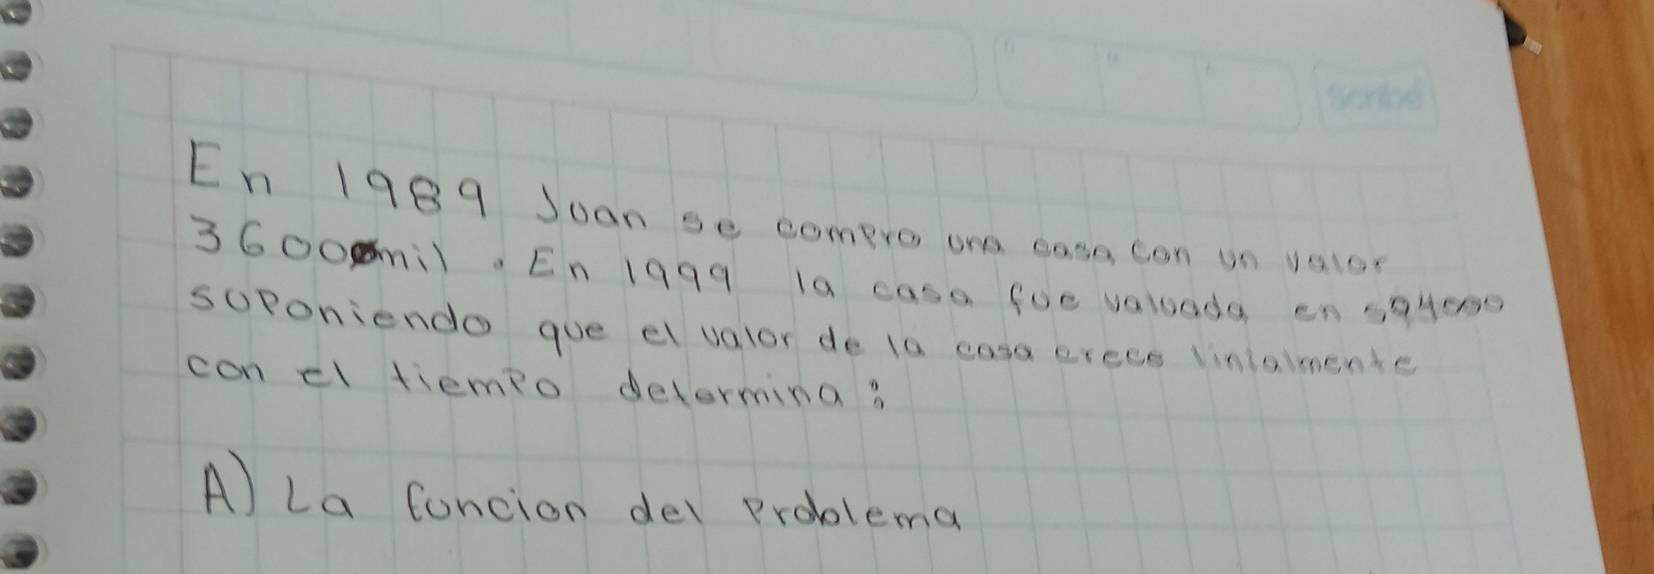 Scribe
En 1989 Juan se compro una casa con un valor
3600mil. En 1999 la casa fue valuada en 594000
soponiendo que el valor de la casa crece linialmente
con el tiempo determina:
A) La funcion del problema